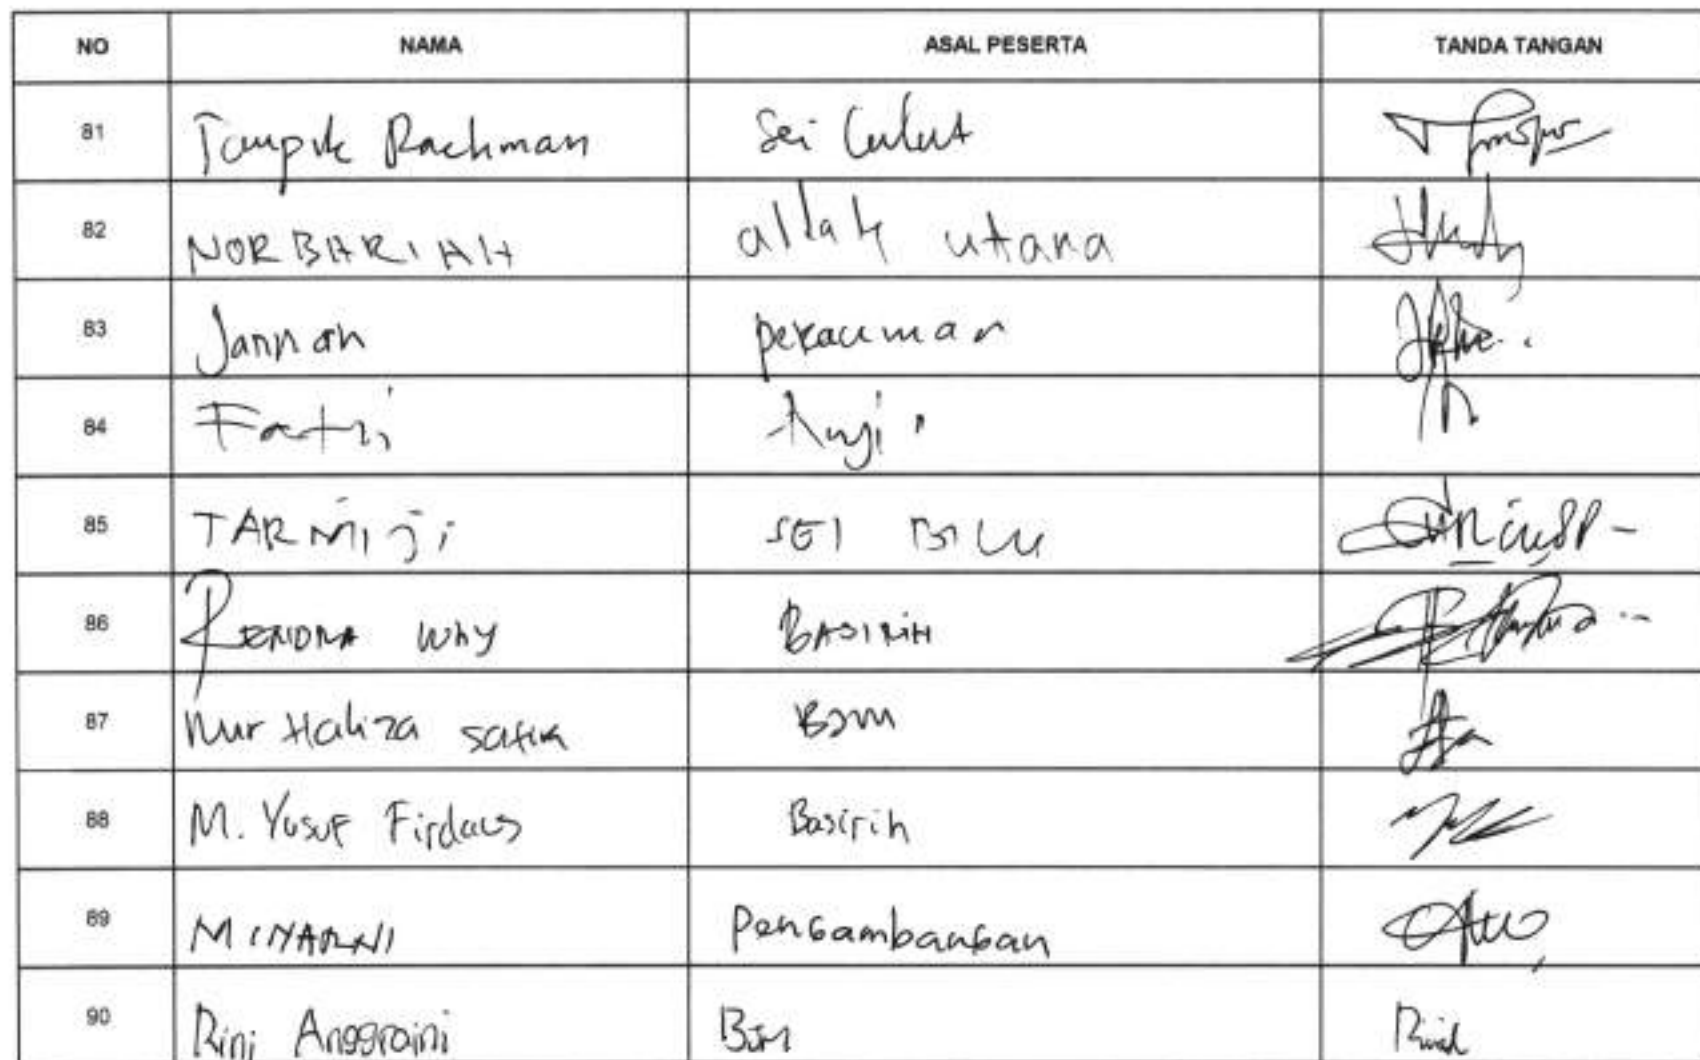 NO NAMA ASAL PESERTA TANDA TANGAN
81 Taupik Rachman Sei Lulut
82 NORBARIAH allak utara
83 Jannah pekauman
84 Fatri
85 TARMIJI SEI BILU
86 RENDRA WHY BASIRIH
87 Nur Haliza safira BJM
88 M. Yusuf Firdaus Basirih
89 MINARNI Pengambangan
90 Rini Anggraini BJM